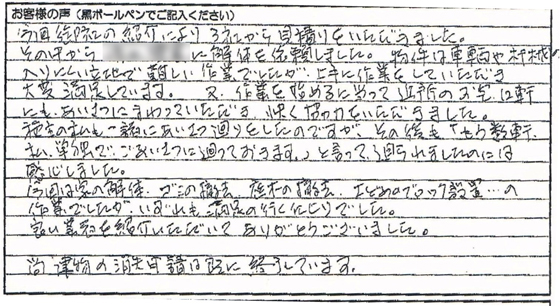 お客様の声（黒ボールペンでご記入ください）
今回 の紹介により3社から見積りをいただきました。
その中から に解体を依頼しました。 物件は車輌や機械が
入りにくい立地で難しい作業でしたが 上手に作業をしていただき
大変満足しています。 又、作業を始めるに当って近所のお宅に
にもあいさつにまわっていただき 快く協力をいただきました。
施主の私も一諸にあいさつ廻りをしたのですが、その後も「もう数軒、
私、単独でごあいさつに廻っておきます。」と言って廻られましたのには
感心しました。
今回は家の解体、ゴミの撤去、植木の撤去、土どめのブロック設置…の
作業でしたが いずれも満足の行く仕上りでした。
良い業者を紹介いただいてありがとうございました。
尚 建物の消失申請は既に終了しています。